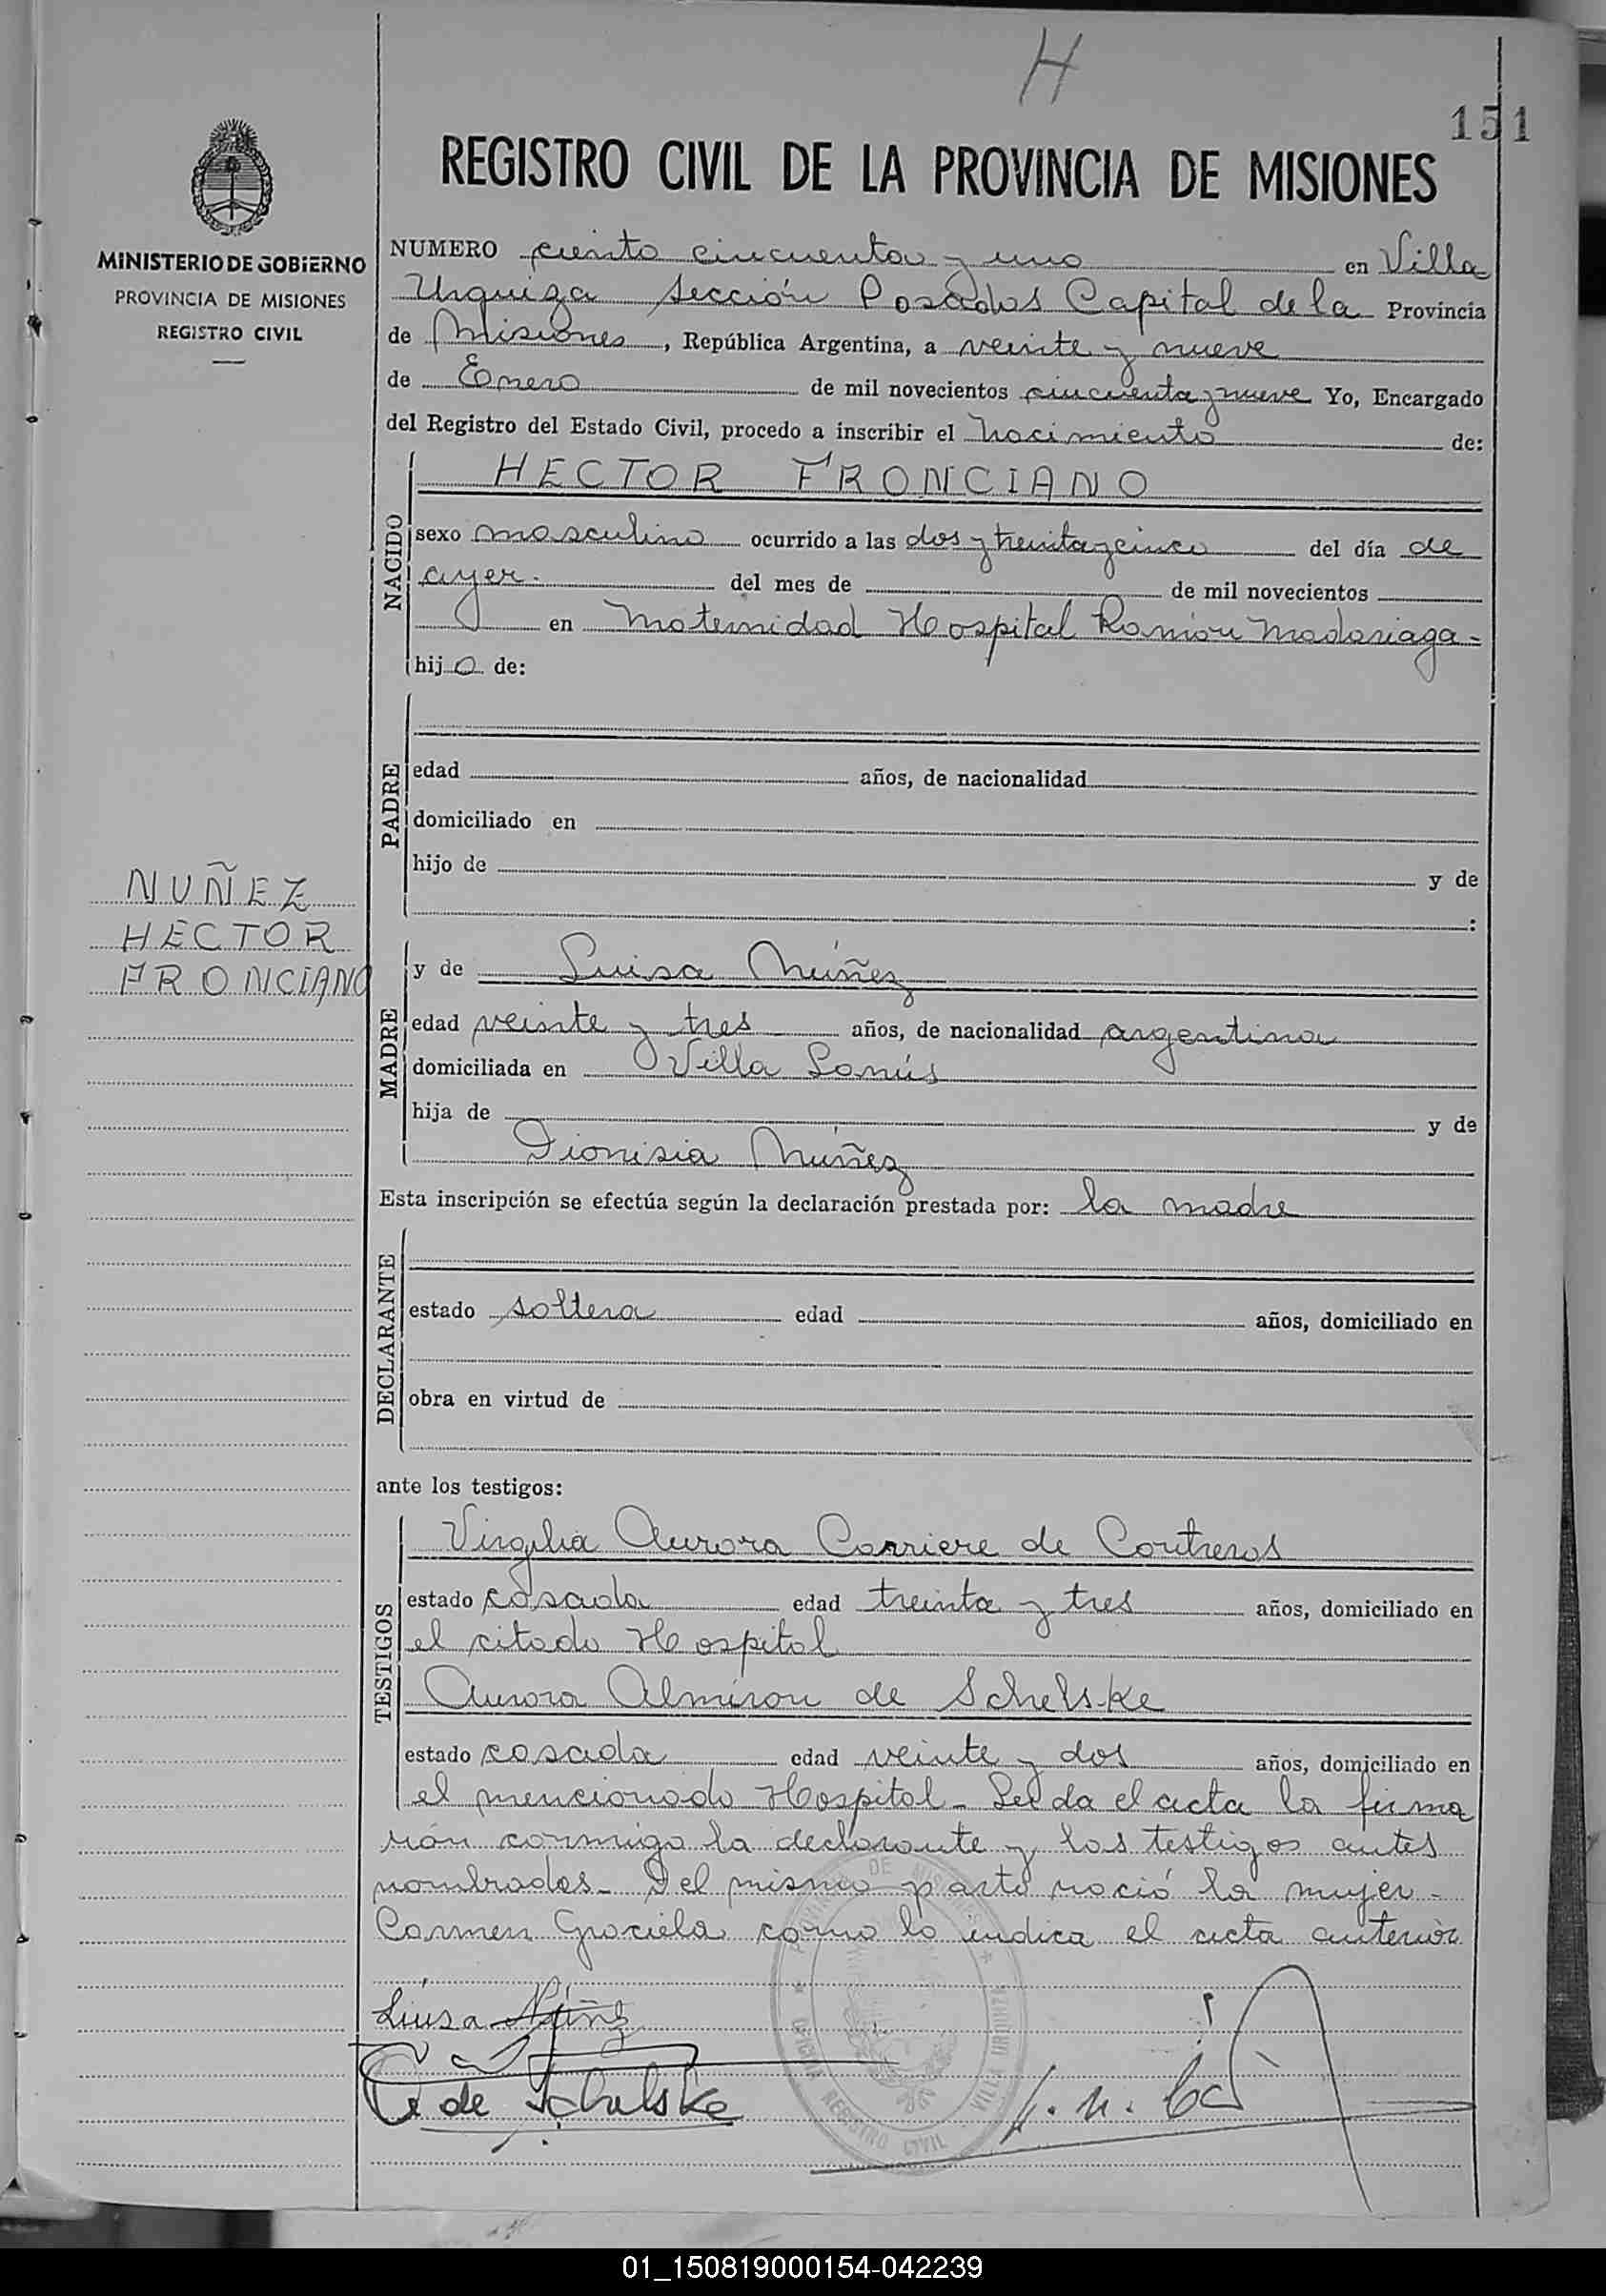 H
151
REGISTRO CIVIL DE LA PROVINCIA DE MISIONES
MINISTERIO DE GOBIERNO
PROVINCIA DE MISIONES
REGISTRO CIVIL
NUMERO ciento cincuenta y uno en Villa
Urquiza sección Posadas Capital de la Provincia
de Misiones, República Argentina, a veinte y nueve
de Enero de mil novecientos cincuenta y nueve Yo, Encargado
del Registro del Estado Civil, procedo a inscribir el nacimiento de:
NACIDO
HECTOR FRONCIANO
sexo masculino ocurrido a las dos y treinta y cinco del día de
ayer. del mes de de mil novecientos
en Maternidad Hospital Ramón Madariaga-
hijo de:
PADRE
edad años, de nacionalidad
domiciliado en
hijo de y de
:
NUÑEZ
HECTOR
FRONCIANO
MADRE
y de Luisa Núñez
edad veinte y tres años, de nacionalidad argentina
domiciliada en Villa Lanús
hija de y de
Dionisia Núñez
Esta inscripción se efectúa según la declaración prestada por: la madre
DECLARANTE
estado soltera edad años, domiciliado en
obra en virtud de
ante los testigos:
TESTIGOS
Virgilia Aurora Carriere de Contreras
estado casada edad treinta y tres años, domiciliado en
el citado Hospital
Aurora Almiron de Schelske
estado casada edad veinte y dos años, domiciliado en
el mencionado Hospital- Leída el acta la firma
rón conmigo la declarante y los testigos antes
nombrados- Del mismo parto nació la mujer-
Carmen Graciela como lo indica el acta anterior
Luisa Núñez
de Schelske
REGISTRO CIVIL
01_150819000154-042239